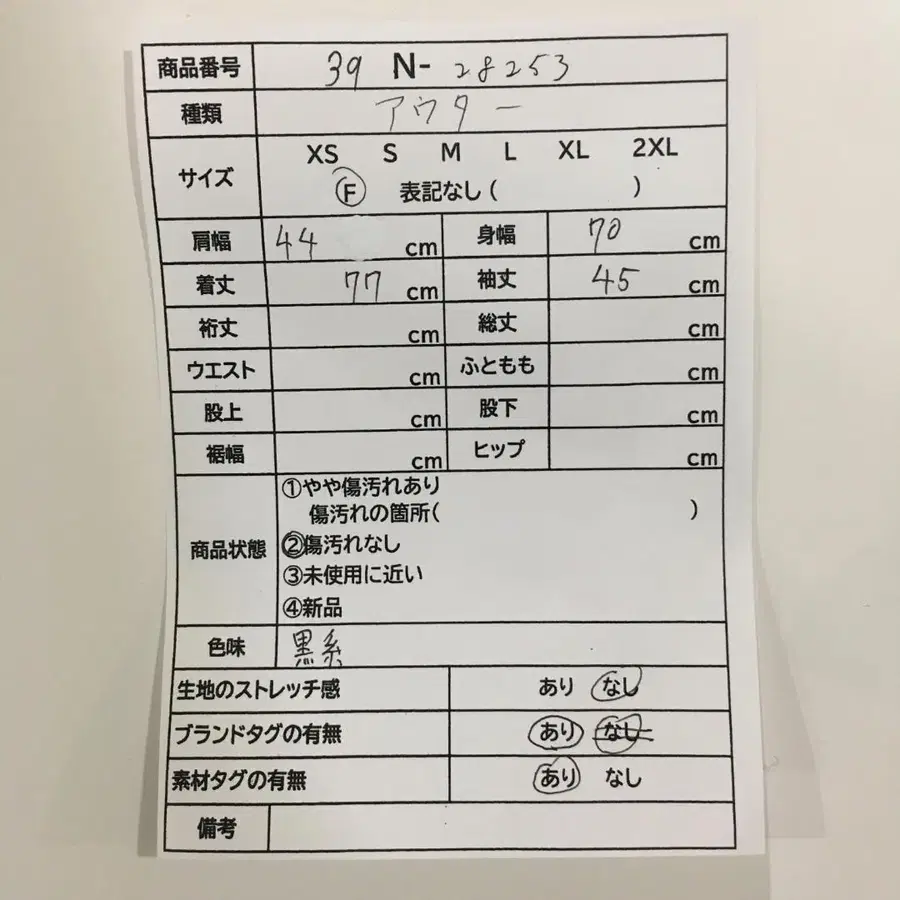 商品番号 39 N- 28253
種類 アウター
サイズ XS S M L XL 2XL
F 表記なし( )
肩幅 44 cm 身幅 70 cm
着丈 77 cm 袖丈 45 cm
裄丈 cm 総丈 cm
ウエスト cm ふともも cm
股上 cm 股下 cm
裾幅 cm ヒップ cm
商品状態 ①やや傷汚れあり
傷汚れの箇所( )
②傷汚れなし
③未使用に近い
④新品
色味 黒系
生地のストレッチ感 あり なし
ブランドタグの有無 あり なし
素材タグの有無 あり なし
備考